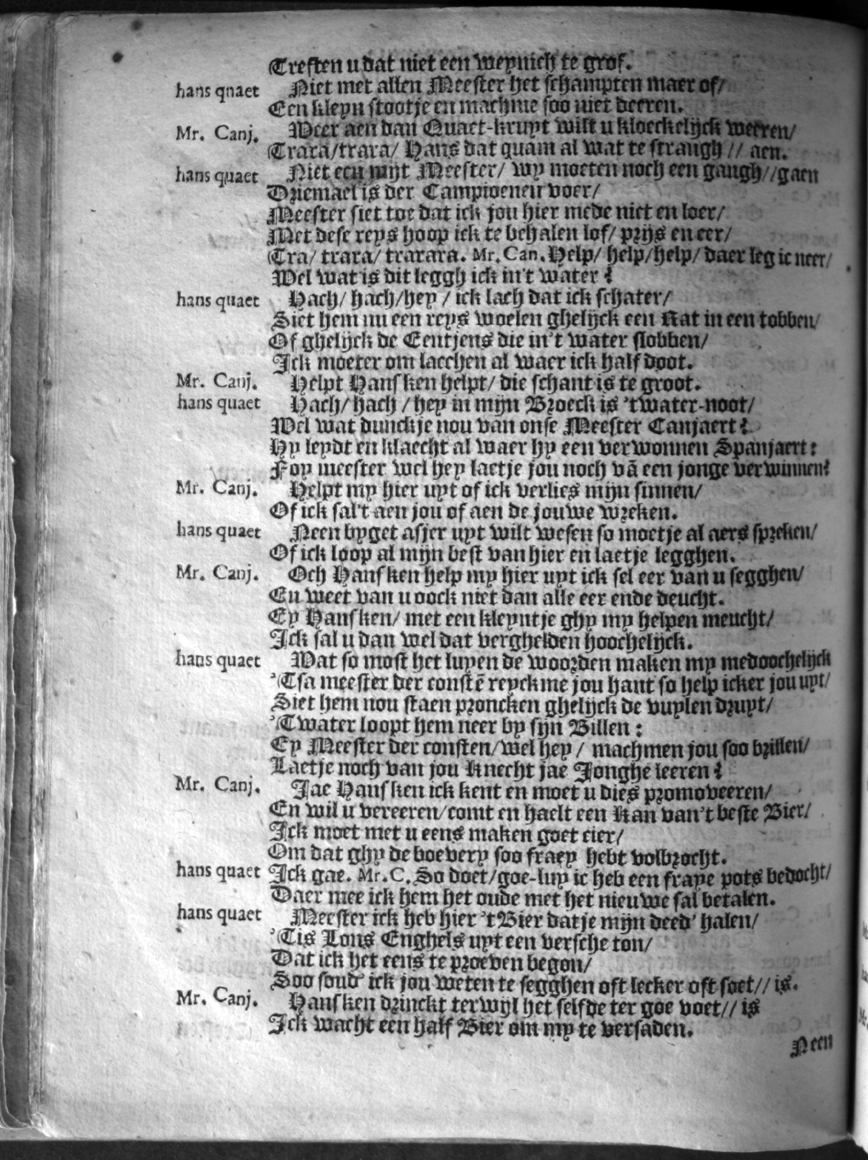 Tresten u dat niet een weynich te grof.
hans quaet Niet met allen Meester het schampten maer of/
Een kleyn stootje en machme soo niet deeren.
Mr. Canj. Weer aen dan Quaet-kruyt wilt u kloeckelijck weeren/
Trara/trara/ Hans dat quam al wat te straugh // aen.
hans quaet Niet een mijt Meester/ wy moeten noch een gangh//gaen
Driemael is der Campioenen voer/
Meester siet toe dat ick jou hier mede niet en loer/
Met dese reys hoop ick te behalen lof/ prijs en eer/
Tra/ trara/ trarara. Mr. Can. Help/ help/help/ daer leg ic neer/
Wel wat is dit leggh ick in't water?
hans quaet Hach/ hach/hey / ick lach dat ick schater/
Siet hem nu een reys woelen ghelijck een Kat in een tobben/
Of ghelijck de Eentjens die in't water slobben/
Ick moeter om lacchen al waer ick half doot.
Mr. Canj. Helpt Hansken helpt/ die schant is te groot.
hans quaet Hach/ hach / hey in mijn Broeck is 'twater-noot/
Wel wat dunckje nou van onse Meester Canjaert?
Hy leydt en klaecht al waer hy een verwonnen Spanjaert:
Foy meester wel hey laetje jou noch vā een jonge verwinnen?
Mr. Canj. Helpt my hier uyt of ick verlies mijn sinnen/
Of ick sal't aen jou of aen de jouwe wreken.
hans quaet Neen byget asjer uyt wilt wesen so moetje al aers spreken/
Of ick loop al mijn best van hier en laetje legghen.
Mr. Canj. Och Hansken help my hier uyt ick sel eer van u segghen/
En weet van u oock niet dan alle eer ende deucht.
Ey Hansken/ met een kleyntje ghy my helpen meucht/
Ick sal u dan wel dat verghelden hoochelijck.
hans quaet Wat so most het luyen de woorden maken my medoochelijck
'Tsa meester der constē reyckme jou hant so help icker jou uyt/
Siet hem nou staen proncken ghelijck de vuylen druyt/
'Twater loopt hem neer by sijn Billen:
Ey Meester der consten/wel hey / machmen jou soo brillen/
Laetje noch van jou Knecht jae Jonghe leeren?
Mr. Canj. Jae Hansken ick kent en moet u dies promoveeren/
En wil u vereeren/comt en haelt een Kan van't beste Bier/
Ick moet met u eens maken goet cier/
Om dat ghy de boevery soo fraey hebt volbrocht.
hans quaet Ick gae. Mr.C. So doet/goe-luy ic heb een fraye pots bedocht/
Daer mee ick hem het oude met het nieuwe sal betalen.
hans quaet Meester ick heb hier 'tBier datje mijn deed' halen/
'Tis Lons Enghels uyt een versche ton/
Dat ick het eens te proeven begon/
Soo soud' ick jou weten te segghen oft lecker oft soet// is.
Mr. Canj. Hansken drinckt terwyl het selfde ter goe voet// is
Ick wacht een half Bier om my te versaden.
Neen